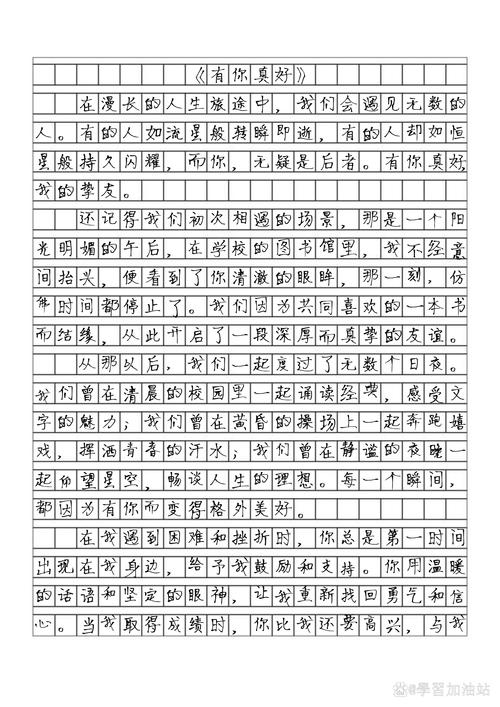 《有你真好》
在漫长的人生旅途中，我们会遇见无数的
人。有的人如流星般转瞬即逝，有的人却如恒
星般持久闪耀，而你，无疑是后者。有你真好，
我的挚友。
还记得我们初次相遇的场景，那是一个阳
光明媚的午后，在学校的图书馆里，我不经意
间抬头，便看到了你清澈的眼眸，那一刻，仿
佛时间都停止了。我们因为共同喜欢的一本书
而结缘，从此开启了一段深厚而真挚的友谊。
从那以后，我们一起度过了无数个日夜。
我们曾在清晨的校园里一起诵读经典，感受文
字的魅力；我们曾在黄昏的操场上一起奔跑嬉
戏，挥洒青春的汗水；我们曾在静谧的夜晚一
起仰望星空，畅谈人生的理想。每一个瞬间，
都因为有你而变得格外美好。
在我遇到困难和挫折时，你总是第一时间
出现在我身边，给予我鼓励和支持。你用温暖
的话语和坚定的眼神，让我重新找回勇气和信
心。当我取得成绩时，你比我还要高兴，与我
@學習加油站